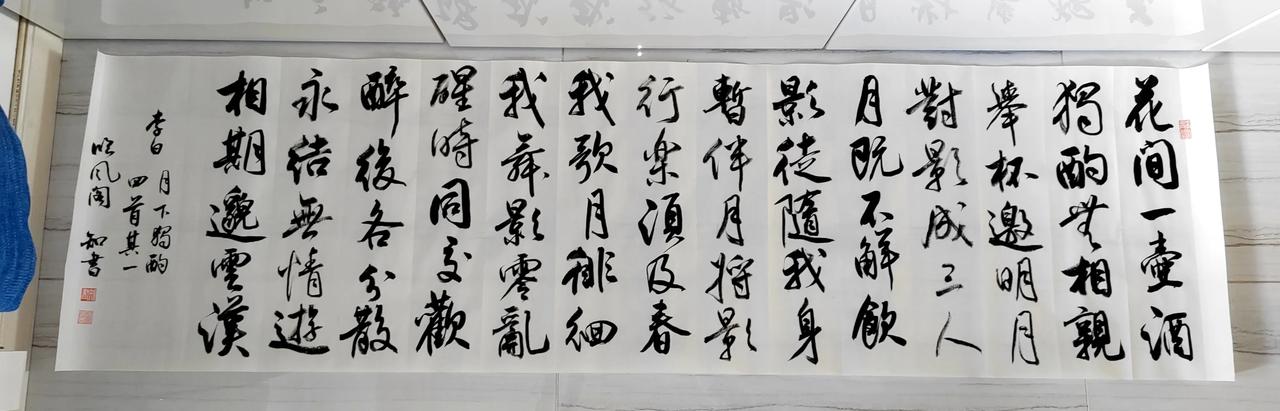 花间一壶酒
獨酌無相親
舉杯邀明月
對影成三人
月既不解飲
影徒隨我身
暫伴月將影
行樂須及春
我歌月徘徊
我舞影零亂
醒時同交歡
醉後各分散
永结無情遊
相期邈雲漢
李白 月下獨酌
四首其一
吟风阁 知書